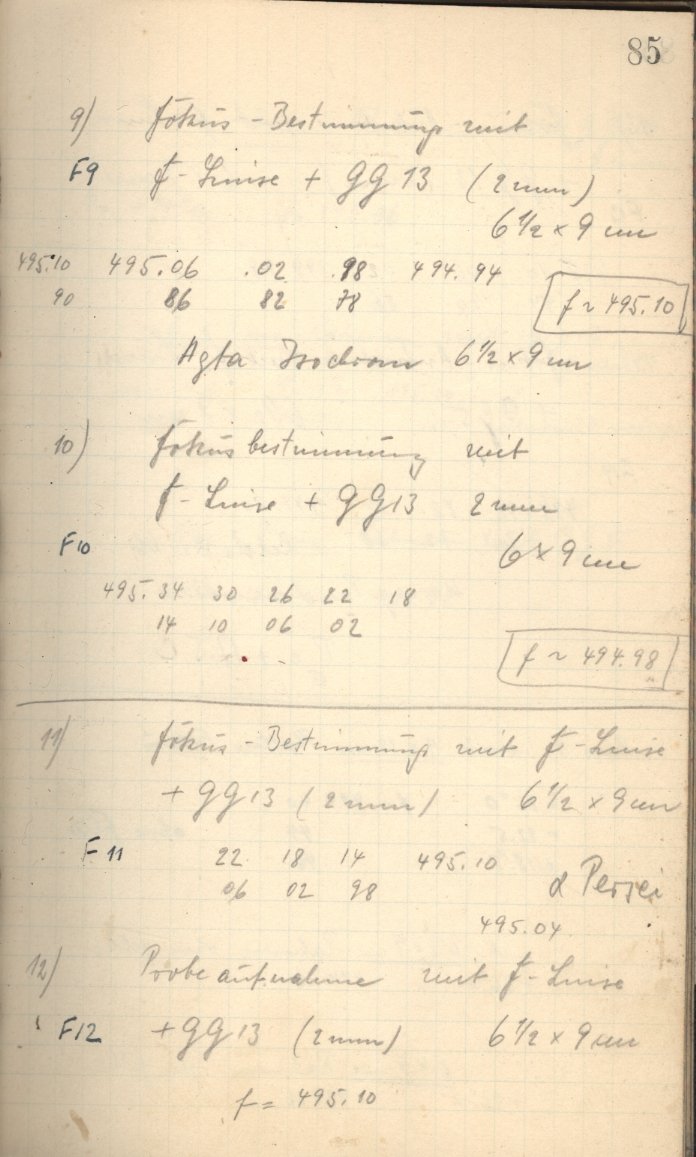 85
9) Fokus - Bestimmung mit
F9 f - Linse + GG 13 (2 mm)
6 1/2 x 9 cm
495.10 495.06 .02 .98 494.94
90 86 82 78
f ~ 495.10
Agfa Isochrom 6 1/2 x 9 cm
10) Fokusbestimmung mit
f - Linse + GG13 2 mm
F10
6 x 9 cm
495.34 30 26 22 18
14 10 06 02
f ~ 494.98
11) Fokus - Bestimmung mit f - Linse
+ GG13 (2 mm) 6 1/2 x 9 cm
F11 22 18 14 495.10
06 02 98 α Persei
495.04
12) Probeaufnahme mit f - Linse
F12 + GG13 (2 mm) 6 1/2 x 9 cm
f = 495.10